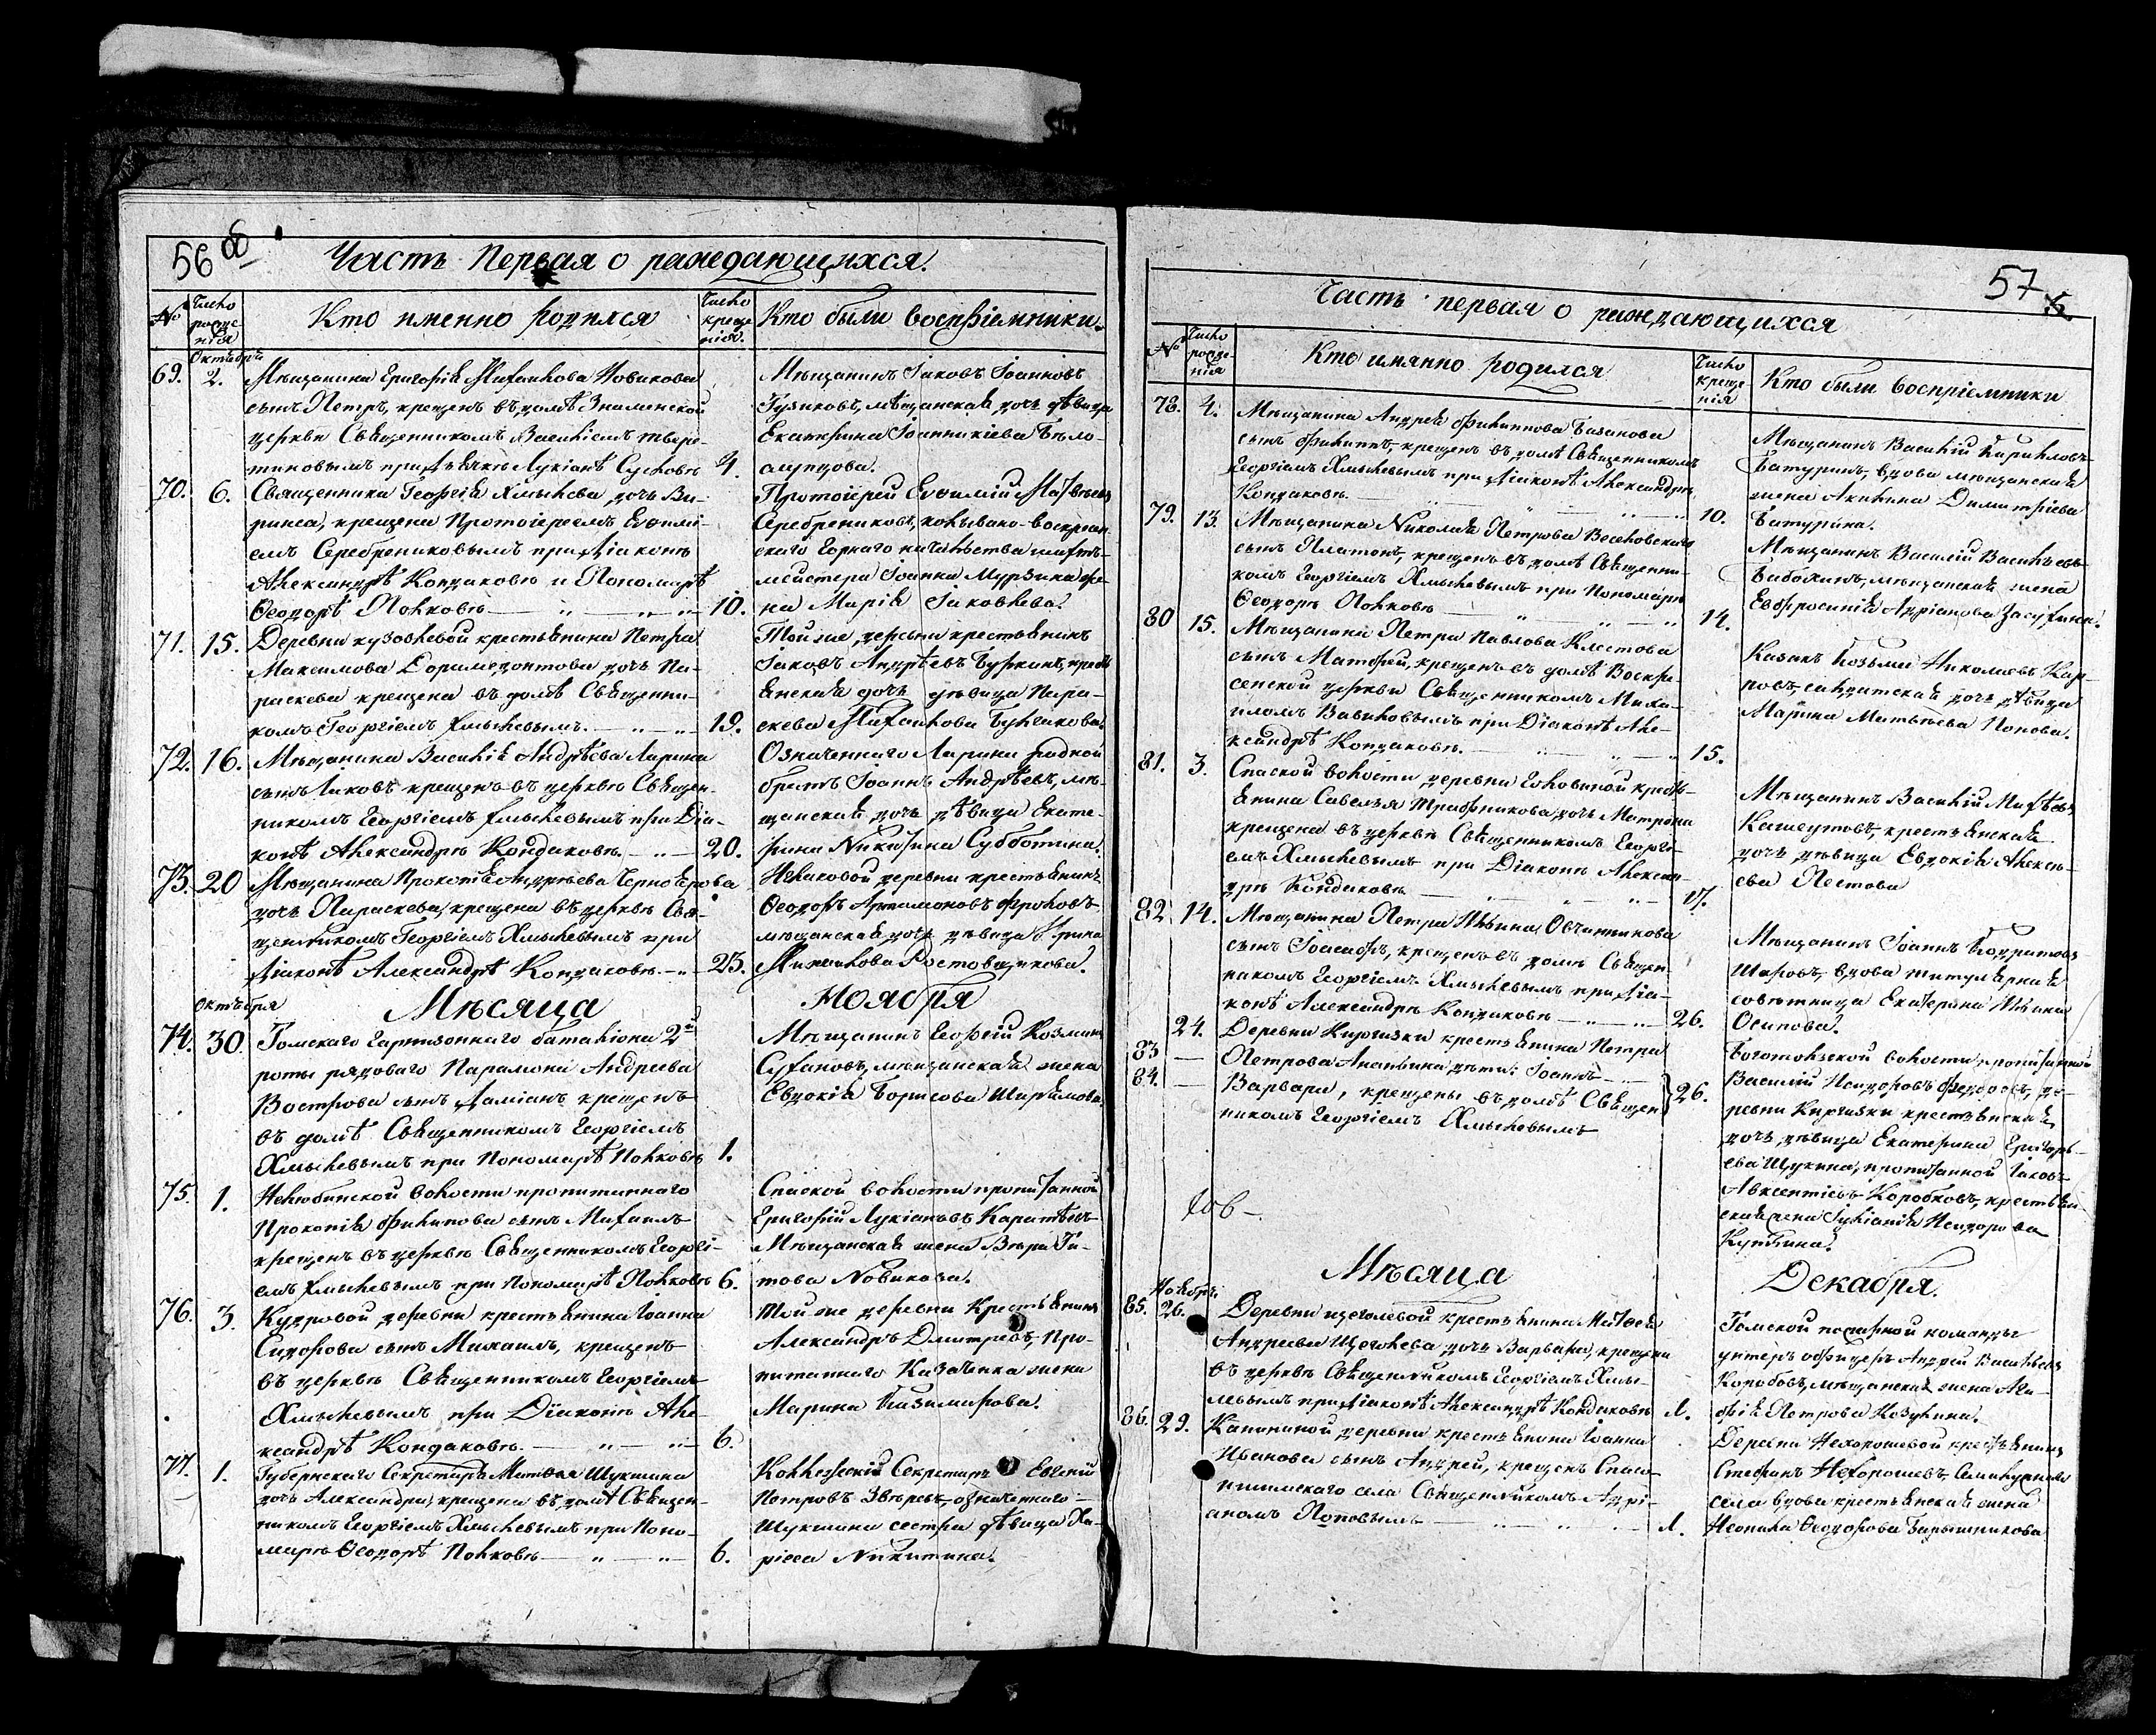 56 об
Часть Первая о раждающихся.
№
Число рожде-
нія
Кто именно родился
Число
креще
нія.
Кто были воспріемники.
Октября
69. 2. Мѣщанина Григорія Михаилова Новикова
сынъ Петръ, крещенъ въ домѣ Знаменской
церкви Священникомъ Василіемъ Твере-
тиновымъ при Дьячкѣ Лукіанѣ Сусловѣ 4.
Мѣщанинъ Іаковъ Іоанновъ
Гузиковъ, мѣщанская дочь дѣвица
Екатерина Іоанникіева Бѣло-
70. 6. Священника Георгія Хмылева дочь Ви-
ринеа, крещена Протоіереемъ Евфимі-
емъ Серебрениковымъ при Діаконѣ
Александрѣ Кондаковѣ и Пономарѣ
Ѳеодорѣ Попковѣ 10.
Протоіерей Евфимій Матвѣевъ
Серебрениковъ, колывано-воскресен
скаго горнаго начальства шихтъ-
мейстера Іоанна Мурзина же-
на Марія Іаковлева.
71. 15. Деревни кузовлевой крестьянина Петра
Максимова Доримедонтова дочь Па-
раскева крещена въ домѣ Священни-
комъ Георгіемъ Хмылевымъ. 19.
Той же деревни крестьянинъ
Іаковъ Андрѣевъ Буркинъ, кресть
янская дочь дѣвица Пара-
скева Михаилова Булгакова.
72. 16. Мѣщанина Василія Андрѣева Ларина
сынъ Іаковъ крещенъ въ церквѣ Священ-
никомъ Георгіемъ Хмылевымъ при Діа-
конѣ Александрѣ Кондаковѣ. 20.
Означеннаго Ларина родной
братъ Іоаннъ Андрѣевъ, мѣ-
щанская дочь дѣвица Екате-
рина Никитина Субботина.
73. 20 Мѣщанина Прокопія Андреева Черноярова
дочь Параскева, крещена въ церквѣ Свя-
щенникомъ Георгіемъ Хмылевымъ при
Діаконѣ Александрѣ Кондаковѣ. 23.
деревни крестьянинъ
Ѳеодоръ Артамоновъ Фроловъ
мѣщанская дочь дѣвица Ирина
Михаилова Ростовщикова.
Октября
Мѣсяца Ноября
74. 30. Томскаго гарнизоннаго баталіона 2й
роты рядоваго Парамона Андреева
Вострова сынъ Даміанъ крещенъ
въ домѣ Священникомъ Георгіемъ
Хмылевымъ при Пономарѣ Попковѣ 1.
Мѣщанинъ Георгій Козминъ
Сухановъ, мѣщанская жена
Евдокія Борисова
75. 1. Нелюбинской волости пропитаннаго
Прокопія Филипова сынъ Михаилъ
крещенъ въ церквѣ Священникомъ Георгі-
емъ Хмылевымъ при Пономарѣ Попковѣ 6.
Спаской волости пропитанной
Григорій Лукіановъ
Мѣщанская жена Вѣра Ти-
това Новикова.
76. 3. Кудровой деревни крестьянина Іоанна
Сидорова сынъ Михаилъ, крещенъ
въ церквѣ Священникомъ Георгіемъ
Хмылевымъ при Діаконѣ Але-
ксандрѣ Кондаковѣ. 6.
Той же деревни Крестьянинъ
Александръ Дмитревъ, Про-
питаннаго жена
Марина Казимирова.
77. 1. Губернскаго Секретаря Матѳея Шукшина
дочь Александра, крещена въ домѣ Священ-
никомъ Георгіемъ Хмылевымъ при Поно-
марѣ Ѳеодорѣ Попковѣ 6.
Коллежскій Секретарь Евгеній
Петровъ Звѣревъ, означеннаго
Шукшина сестра дѣвица Ла-
рисса Никитина.
57
Часть первая о раждающихся
№
Число
рожде-
нія
Кто имянно родился
Число
креще
нія
Кто были воспріемники
78. 4. Мѣщанина Андрея Филиппова Базанова
сынъ Филиппъ, крещенъ въ домѣ Священникомъ
Георгіемъ Хмылевымъ при Діаконѣ Александрѣ
Кондаковѣ. 10.
Мѣщанинъ Василій Кириловъ
Батуринъ, вдова мѣщанская
жена Акилина Димитріева
Батурина.
79. 13. Мѣщанина Николая Петрова Веселовскаго
сынъ Платонъ, крещенъ въ домѣ Священни-
комъ Георгіемъ Хмылевымъ при Пономарѣ
Ѳеодорѣ Попковѣ 14.
Мѣщанинъ Василій Васильевъ
мѣщанская жена
Евфросинія Адріанова Засухина.
80 15. Мѣщанина Петра Павлова Клестова
сынъ Матфей, крещенъ въ домѣ Воскре-
сенской церкви Священникомъ Миха-
иломъ Вавиловымъ при Діаконѣ Але-
ксандрѣ Кондаковѣ. 15.
Казакъ Козьма Николаевъ Кар-
повъ, дочь дѣвица
Марина Матвѣева Попова.
81. 3. Спаской волости деревни кресть-
янина Савелья Трифонова дочь Матрона
крещена въ церквѣ Священникомъ Георгі-
емъ Хмылевымъ при Діаконѣ Алексан-
дрѣ Кондаковѣ 17.
Мѣщанинъ Василій
крестьянская
дочь дѣвица Евдокія Алексѣ-
ева Пестова
82. 14. Мѣщанина Петра Ильина Овчинникова
сынъ Іоасафъ, крещенъ въ домѣ Священ-
никомъ Георгіемъ Хмылевымъ при Діа-
конѣ Александрѣ Кондаковѣ 26.
Мѣщанинъ Іоаннъ Кондратовъ
Шаровъ, вдова титулярная
совѣтница Екатерина Ильина
Осипова.
24. Деревни Киргизки крестьянина Петра
83 — Петрова Ананьина дѣти: Іоаннъ
84. — Варвара, крещены въ домѣ Священ
никомъ Георгіемъ Хмылевымъ 26.
Боготольской волости пропитанной
Василій Исидоровъ Федоровъ, де-
ревни Киргизки крестьянская
дочь дѣвица Екатерина Григорь-
ева Щукина, пропитанной Іаковъ
Авксентіевъ Коробковъ, крестьян
ская жена Іуліанія Исидорова
Мѣсяца Декабря.
Ноября
85. 26. Деревни щеголевой крестьянина Матѳея
Андреева Щеголева дочь Варвара, крещена
въ церквѣ Священникомъ Георгіемъ Хмы-
левымъ при Діаконѣ Александрѣ Кондаковѣ 1.
Томской пожарной команды
унтеръ офицеръ Андрей Васильевъ
Коробовъ, мѣщанская жена Ага-
фія Петрова Козулина.
86. 29. Капининой деревни крестьянина Іоанна
Иванова сынъ Андрей, крещенъ Спасо-
села Священникомъ Адрі-
аномъ Поповымъ 1.
Деревни Нехорошевой крестьянинъ
Стефанъ Нехорошевъ,
села вдова крестьянская жена
Неонила Ѳеодорова Барышникова